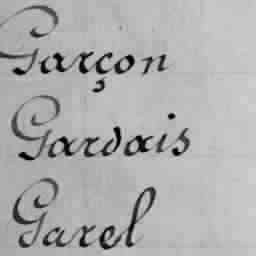 Garçon
Gardais
Garel